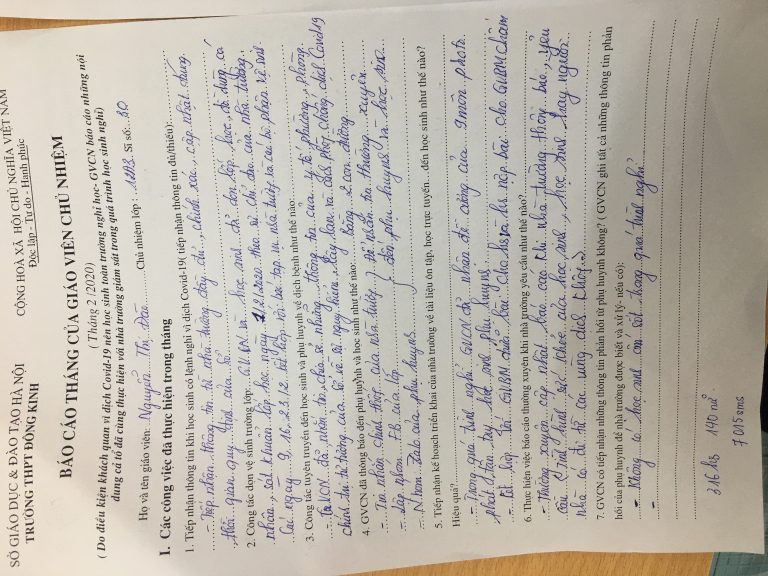 SỞ GIÁO DỤC & ĐÀO TẠO HÀ NỘI
TRƯỜNG THPT ĐÔNG KINH
CỘNG HOÀ XÃ HỘI CHỦ NGHĨA VIỆT NAM
Độc lập - Tự do - Hạnh phúc
BÁO CÁO THÁNG CỦA GIÁO VIÊN CHỦ NHIỆM
( Tháng 2 /2020)
( Do điều kiện khách quan vì dịch Covid-19 nên học sinh toàn trường nghỉ học- GVCN báo cáo những nội
dung cá tổ đã cùng thực hiện với nhà trường giám sát trong quá trình học sinh nghỉ)
Họ và tên giáo viên: Nguyễn Thị Đào Chủ nhiệm lớp : Sĩ số: 30
I. Các công việc đã thực hiện trong tháng
1. Tiếp nhận thông tin khi học sinh có lệnh nghỉ vì dịch Covid-19( tiếp nhận thông tin đủ/thiếu):
- Tiếp nhận thông tin từ nhà trường đầy đủ, chính xác, cập nhật đúng
thời gian quy định của Sở
2. Công tác dọn vệ sinh trường lớp: GVCN và học sinh chỉ dọn lớp học, đồ dùng cá
nhân, sát khuẩn lớp học ngày 2/2/2020 theo sự chỉ đạo của nhà trường,
Các ngày 9, 16, 23/2 tiếp và nhà trường và các bộ phận vệ sinh
3. Công tác tuyên truyền đến học sinh và phụ huynh về dịch bệnh như thế nào:
- GVCN đã nhắn tin, chia sẻ những thông tin của y tế phường, phòng
chính từ hệ thống của Sở về sự nguy hiểm, lây lan và cách phòng chống dịch Covid19
4. GVCN đã thông báo đến phụ huynh và học sinh như thế nào: bằng 2 con đường
- Tin nhắn của nhà trường để nhắn tin thường xuyên
- Lập nhóm FB của lớp đến phụ huynh và học sinh
- Nhóm Zalo của phụ huynh
5. Tiếp nhận kế hoạch triển khai của nhà trường về tài liệu ôn tập, học trực tuyến…đến học sinh như thế nào?
Hiệu quả?
- Trong quá trình nghỉ GVCN đã nhận đề cương của 9 môn phát
phát tận tay học sinh, phụ huynh
- GVBM chữa bài cho hs, hs nộp bài cho GVBM chấm
6. Thực hiện việc báo cáo thường xuyên khi nhà trường yêu cầu như thế nào?
- Thường xuyên cập nhật, báo cáo khi nhà trường thông báo, yêu
cầu (Tình hình sức khỏe của học sinh, học sinh hay người
nhà có đi từ các vùng dịch không)
7. GVCN có tiếp nhận những thông tin phản hồi từ phụ huynh không? ( GVCN ghi tất cả những thông tin phản
hồi của phụ huynh để nhà trường được biết và xử lý- nếu có):
- Không có học sinh trong quá trình nghỉ
-
316 hs 190 nữ
7015 sms